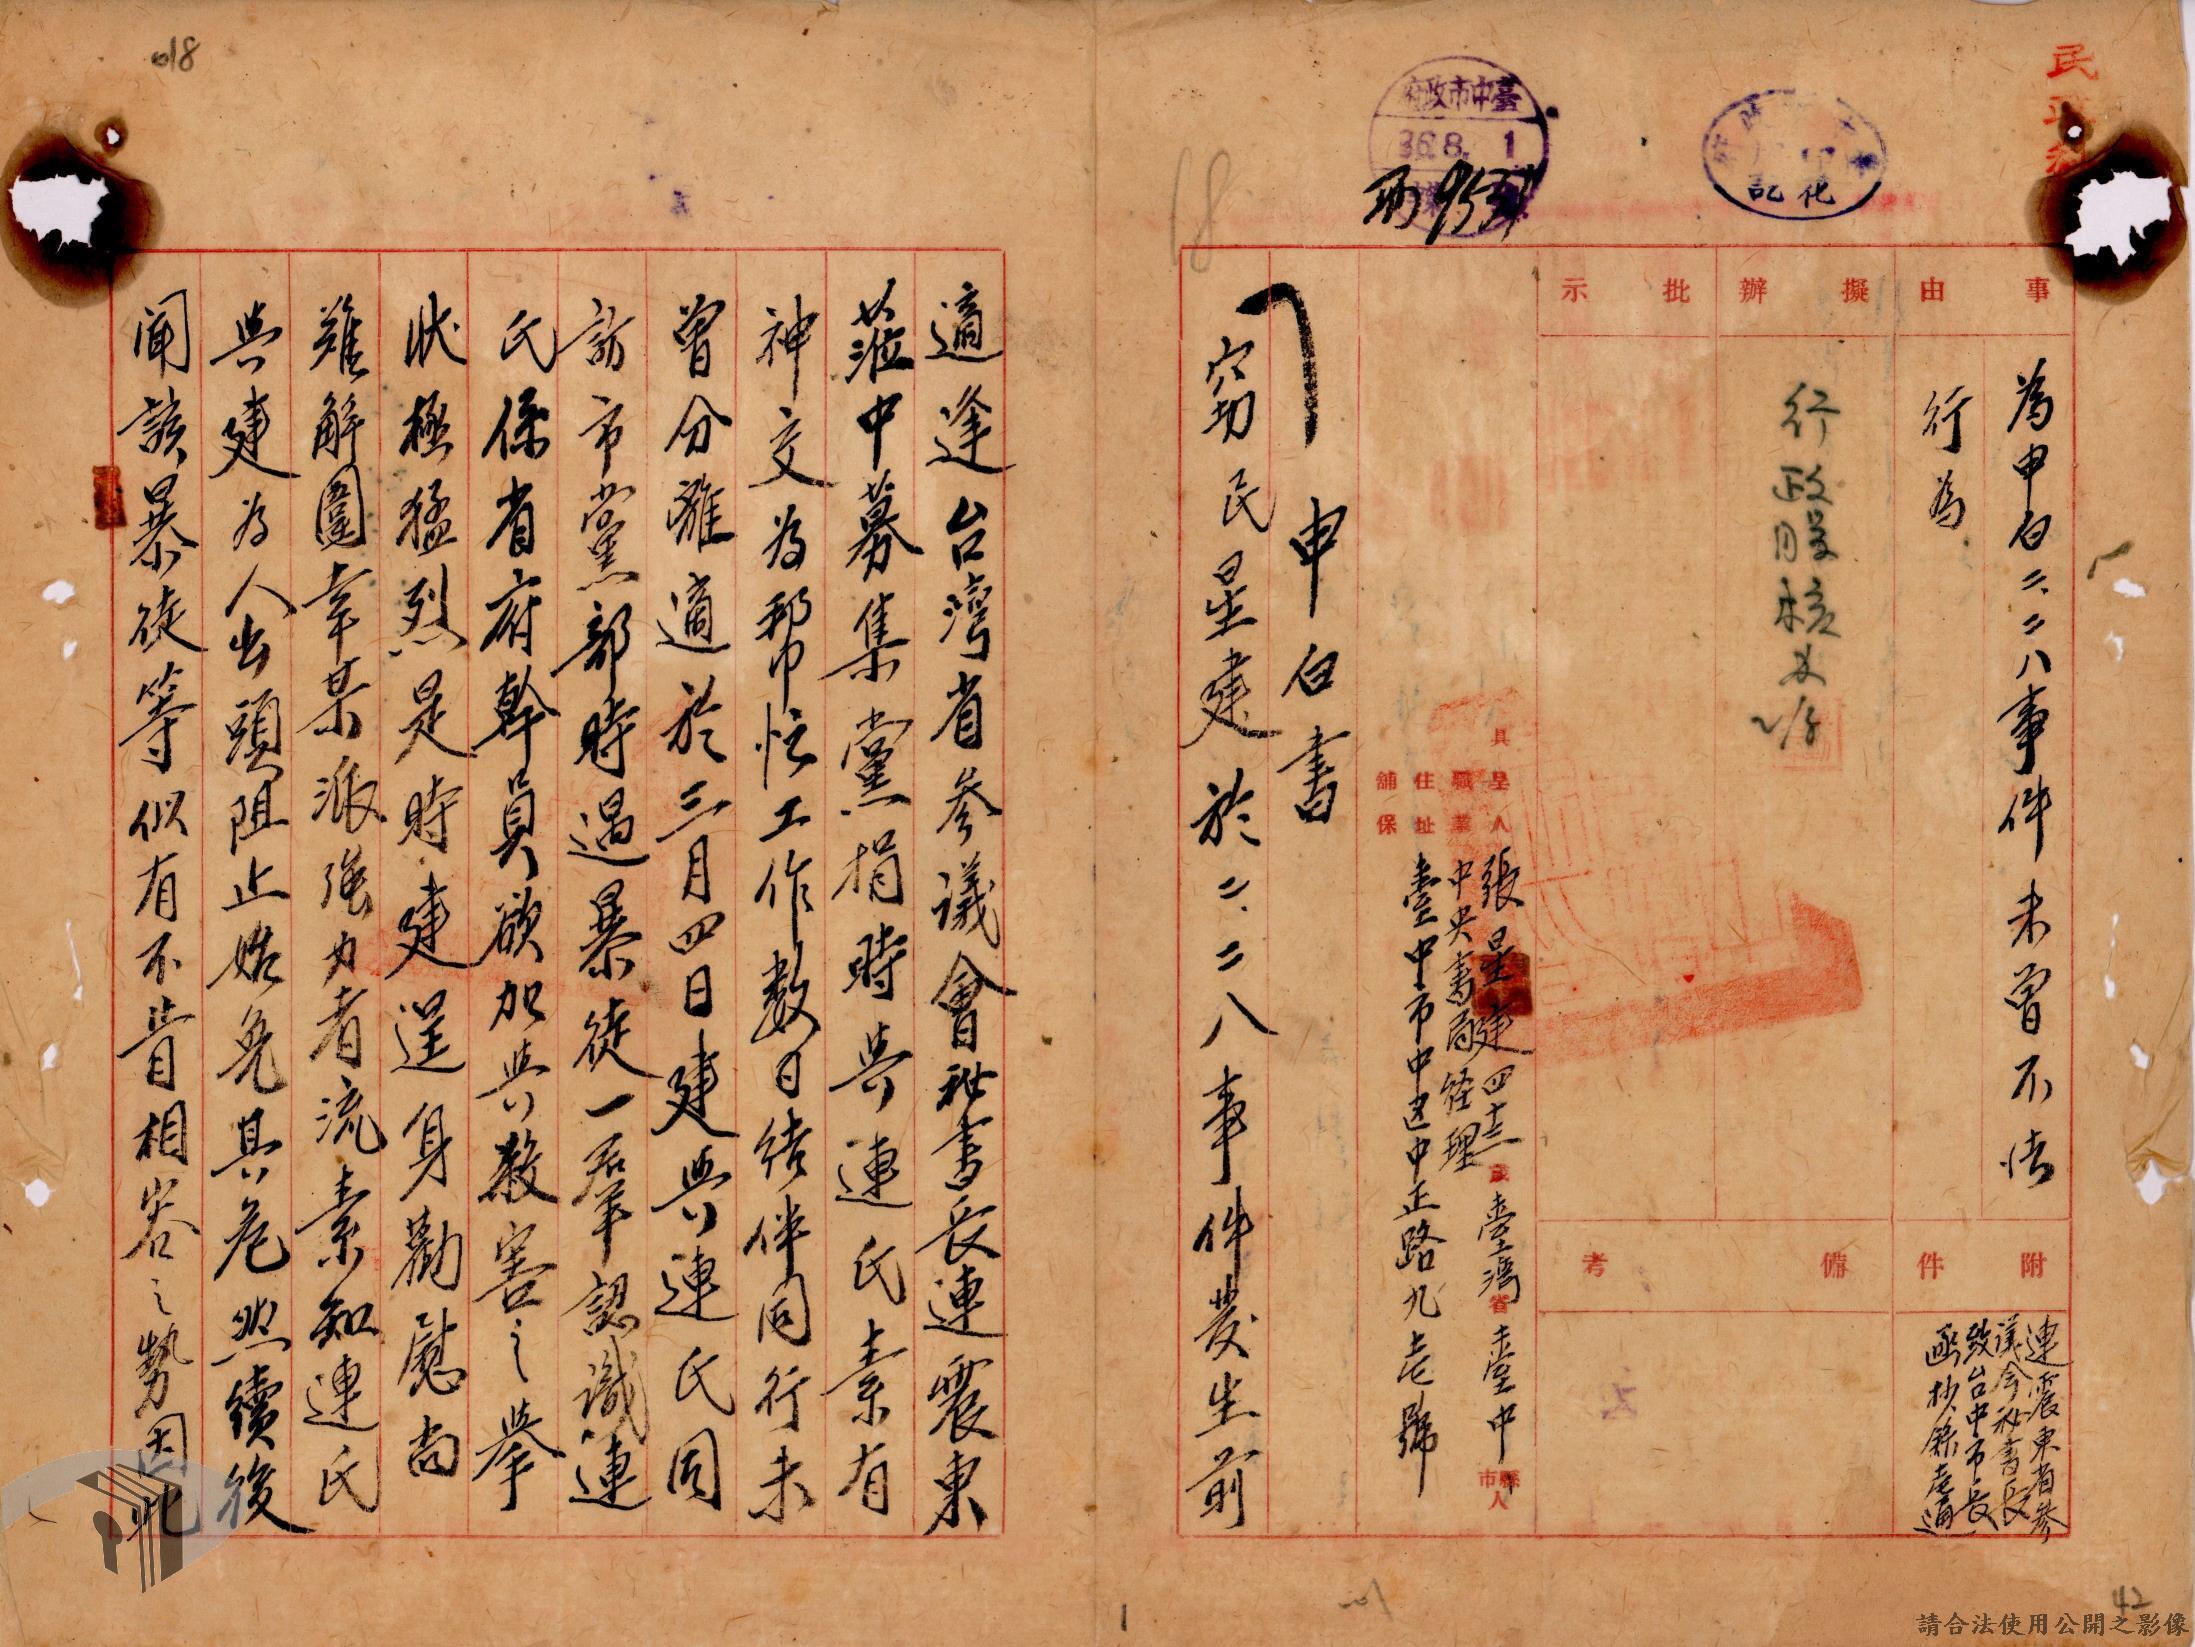 018
民政科
臺中市政府
36.8.1
化記
18
事由
擬辦
批示
為申白二、二八事件未曾不法
行為
附件
備考
連震東省參
議会祕書長
致台中市長
函抄錄壱通
具呈人 張星建 四十三歲 臺灣省臺中縣市人
職業 中央書局経理
住址 臺中市中区中正路九壱號
舖保
申白書
窃民星建於二、二八事件發生前
適逢台灣省參議會祕書長連震東
蒞中募集黨捐時與連氏素有
神交為帮忙工作数日結伴同行未
曾分離適於三月四日建與連氏同
訪市黨部時遇暴徒一羣認識連
氏係省府幹員欲加與殺害之舉
狀極猛烈是時建逞身勸慰尚
难解圍幸某派強力者流素知連氏
與建為人出頭阻止始免其危然續後
聞該暴徒等似有不肯相容之勢因此
42
請合法使用公開之影像